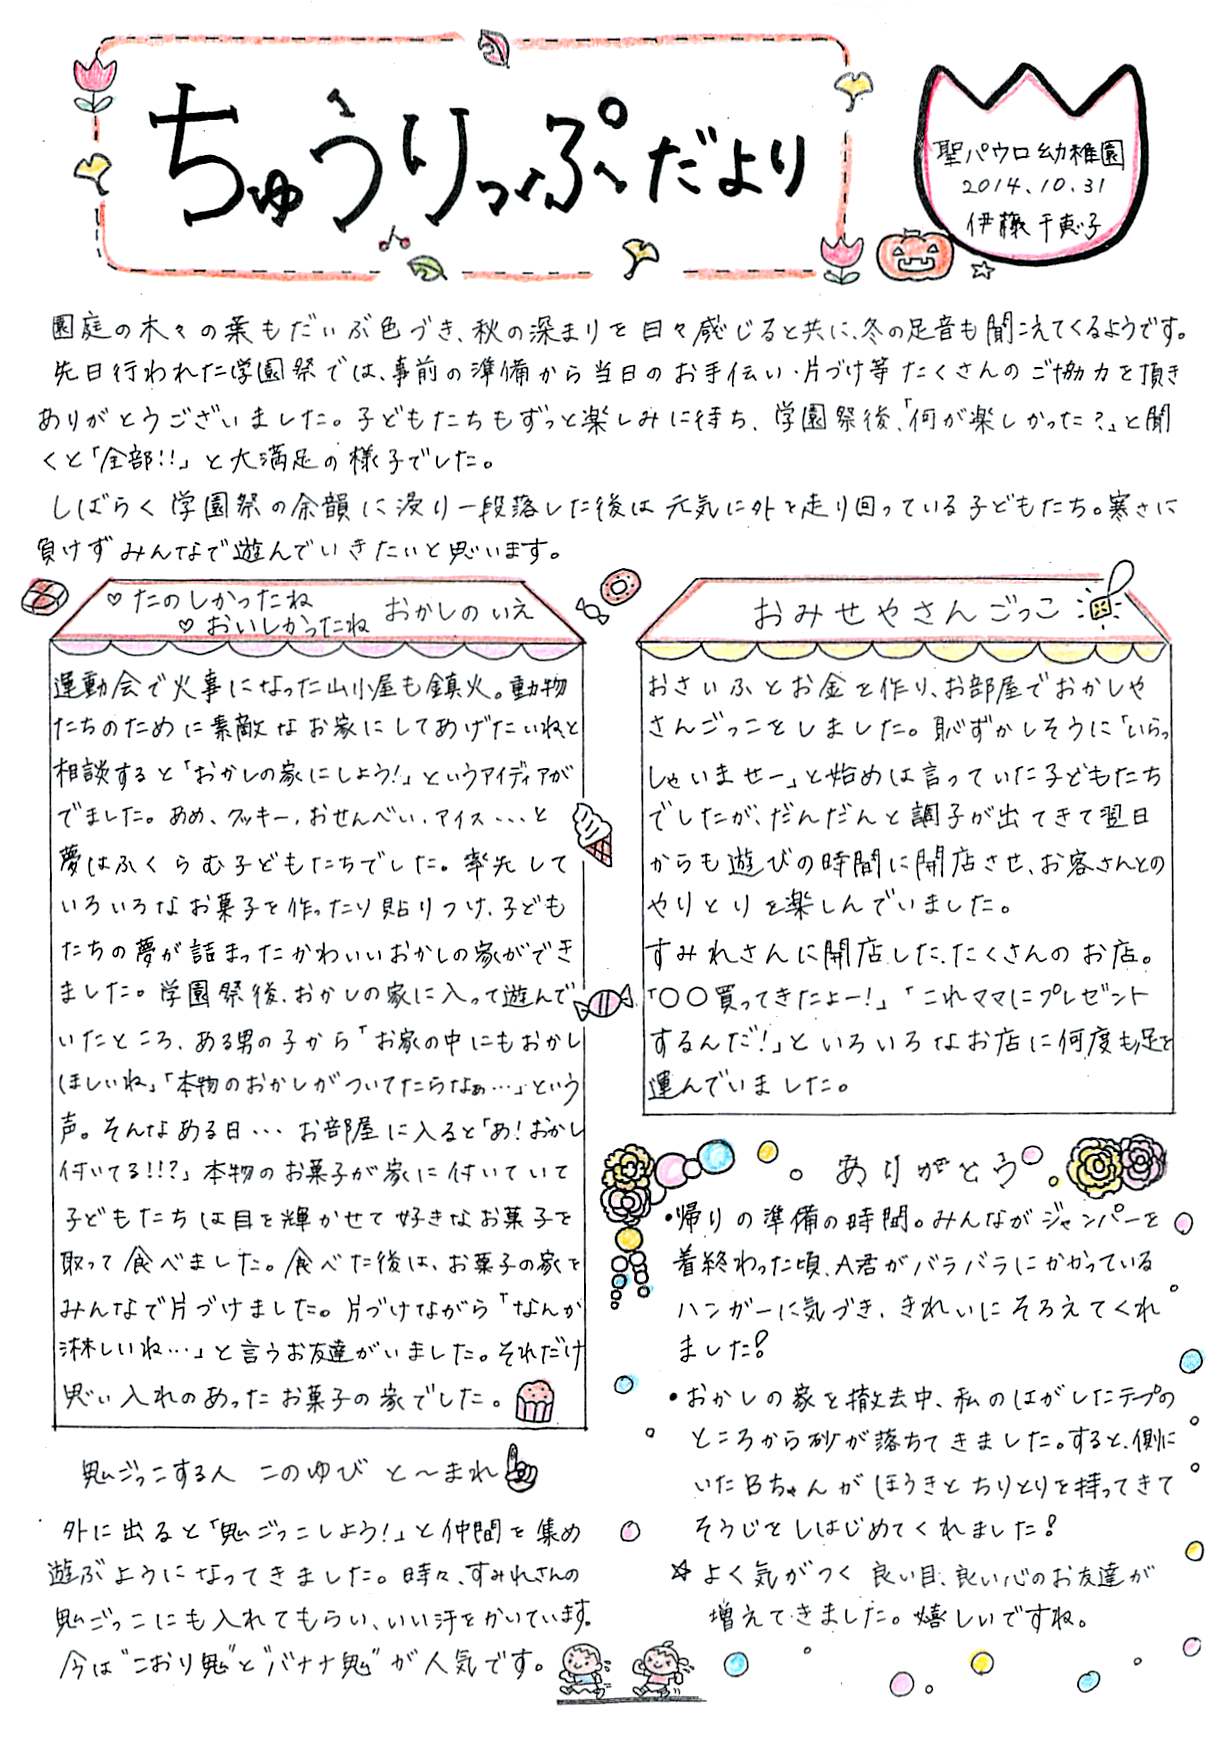 ちゅうりっぷだより
聖パウロ幼稚園
2014.10.31
伊藤千恵子
園庭の木々の葉もだいぶ色づき、秋の深まりを日々感じると共に、冬の足音も聞こえてくるようです。
先日行われた学園祭では、事前の準備から当日のお手伝い・片づけ等たくさんのご協力を頂き
ありがとうございました。子どもたちもずっと楽しみに待ち、学園祭後、「何が楽しかった？」と聞
くと「全部!!」と大満足の様子でした。
しばらく学園祭の余韻に浸り一段落した後は元気に外を走り回っている子どもたち。寒さに
負けずみんなで遊んでいきたいと思います。
♡たのしかったね
♡おいしかったね おかしのいえ
運動会で火事になった山小屋も鎮火。動物
たちのために素敵なお家にしてあげたいねと
相談すると「おかしの家にしよう!」というアイディアが
でました。あめ、クッキー、おせんべい、アイス・・・と
夢はふくらむ子どもたちでした。率先して
いろいろなお菓子を作ったり貼りつけ、子ども
たちの夢が詰まったかわいいおかしの家ができ
ました。学園祭後、おかしの家に入って遊んで
いたところ、ある男の子から「お家の中にもおかし
ほしいね」「本物のおかしがついてたらなぁ…」という
声。そんなある日・・・お部屋に入ると「あ!おかし
付いてる!!?」本物のお菓子が家に付いていて
子どもたちは目を輝かせて好きなお菓子を
取って食べました。食べた後は、お菓子の家を
みんなで片づけました。片づけながら「なんか
淋しいね…」と言うお友達がいました。それだけ
思い入れのあったお菓子の家でした。
鬼ごっこする人 このゆび と〜まれ
外に出ると「鬼ごっこしよう!」と仲間を集め
遊ぶようになってきました。時々、すみれさんの
鬼ごっこにも入れてもらい、いい汗をかいています。
今は“こおり鬼”と“バナナ鬼”が人気です。
おみせやさんごっこ
おさいふとお金を作り、お部屋でおかしや
さんごっこをしました。恥ずかしそうに「いらっ
しゃいませー」と始めは言っていた子どもたち
でしたが、だんだんと調子が出てきて翌日
からも遊びの時間に開店させ、お客さんとの
やりとりを楽しんでいました。
すみれさんに開店した、たくさんのお店。
「〇〇買ってきたよー!」「これママにプレゼント
するんだ!」といろいろなお店に何度も足を
運んでいました。
ありがとう
・帰りの準備の時間。みんながジャンパーを
着終わった頃、A君がバラバラにかかっている
ハンガーに気づき、きれいにそろえてくれ
ました!
・おかしの家を撤去中、私のはがしたテープの
ところから砂が落ちてきました。すると、側に
いたBちゃんがほうきとちりとりを持ってきて
そうじをしはじめてくれました!
☆よく気がつく良い目、良い心のお友達が
増えてきました。嬉しいですね。